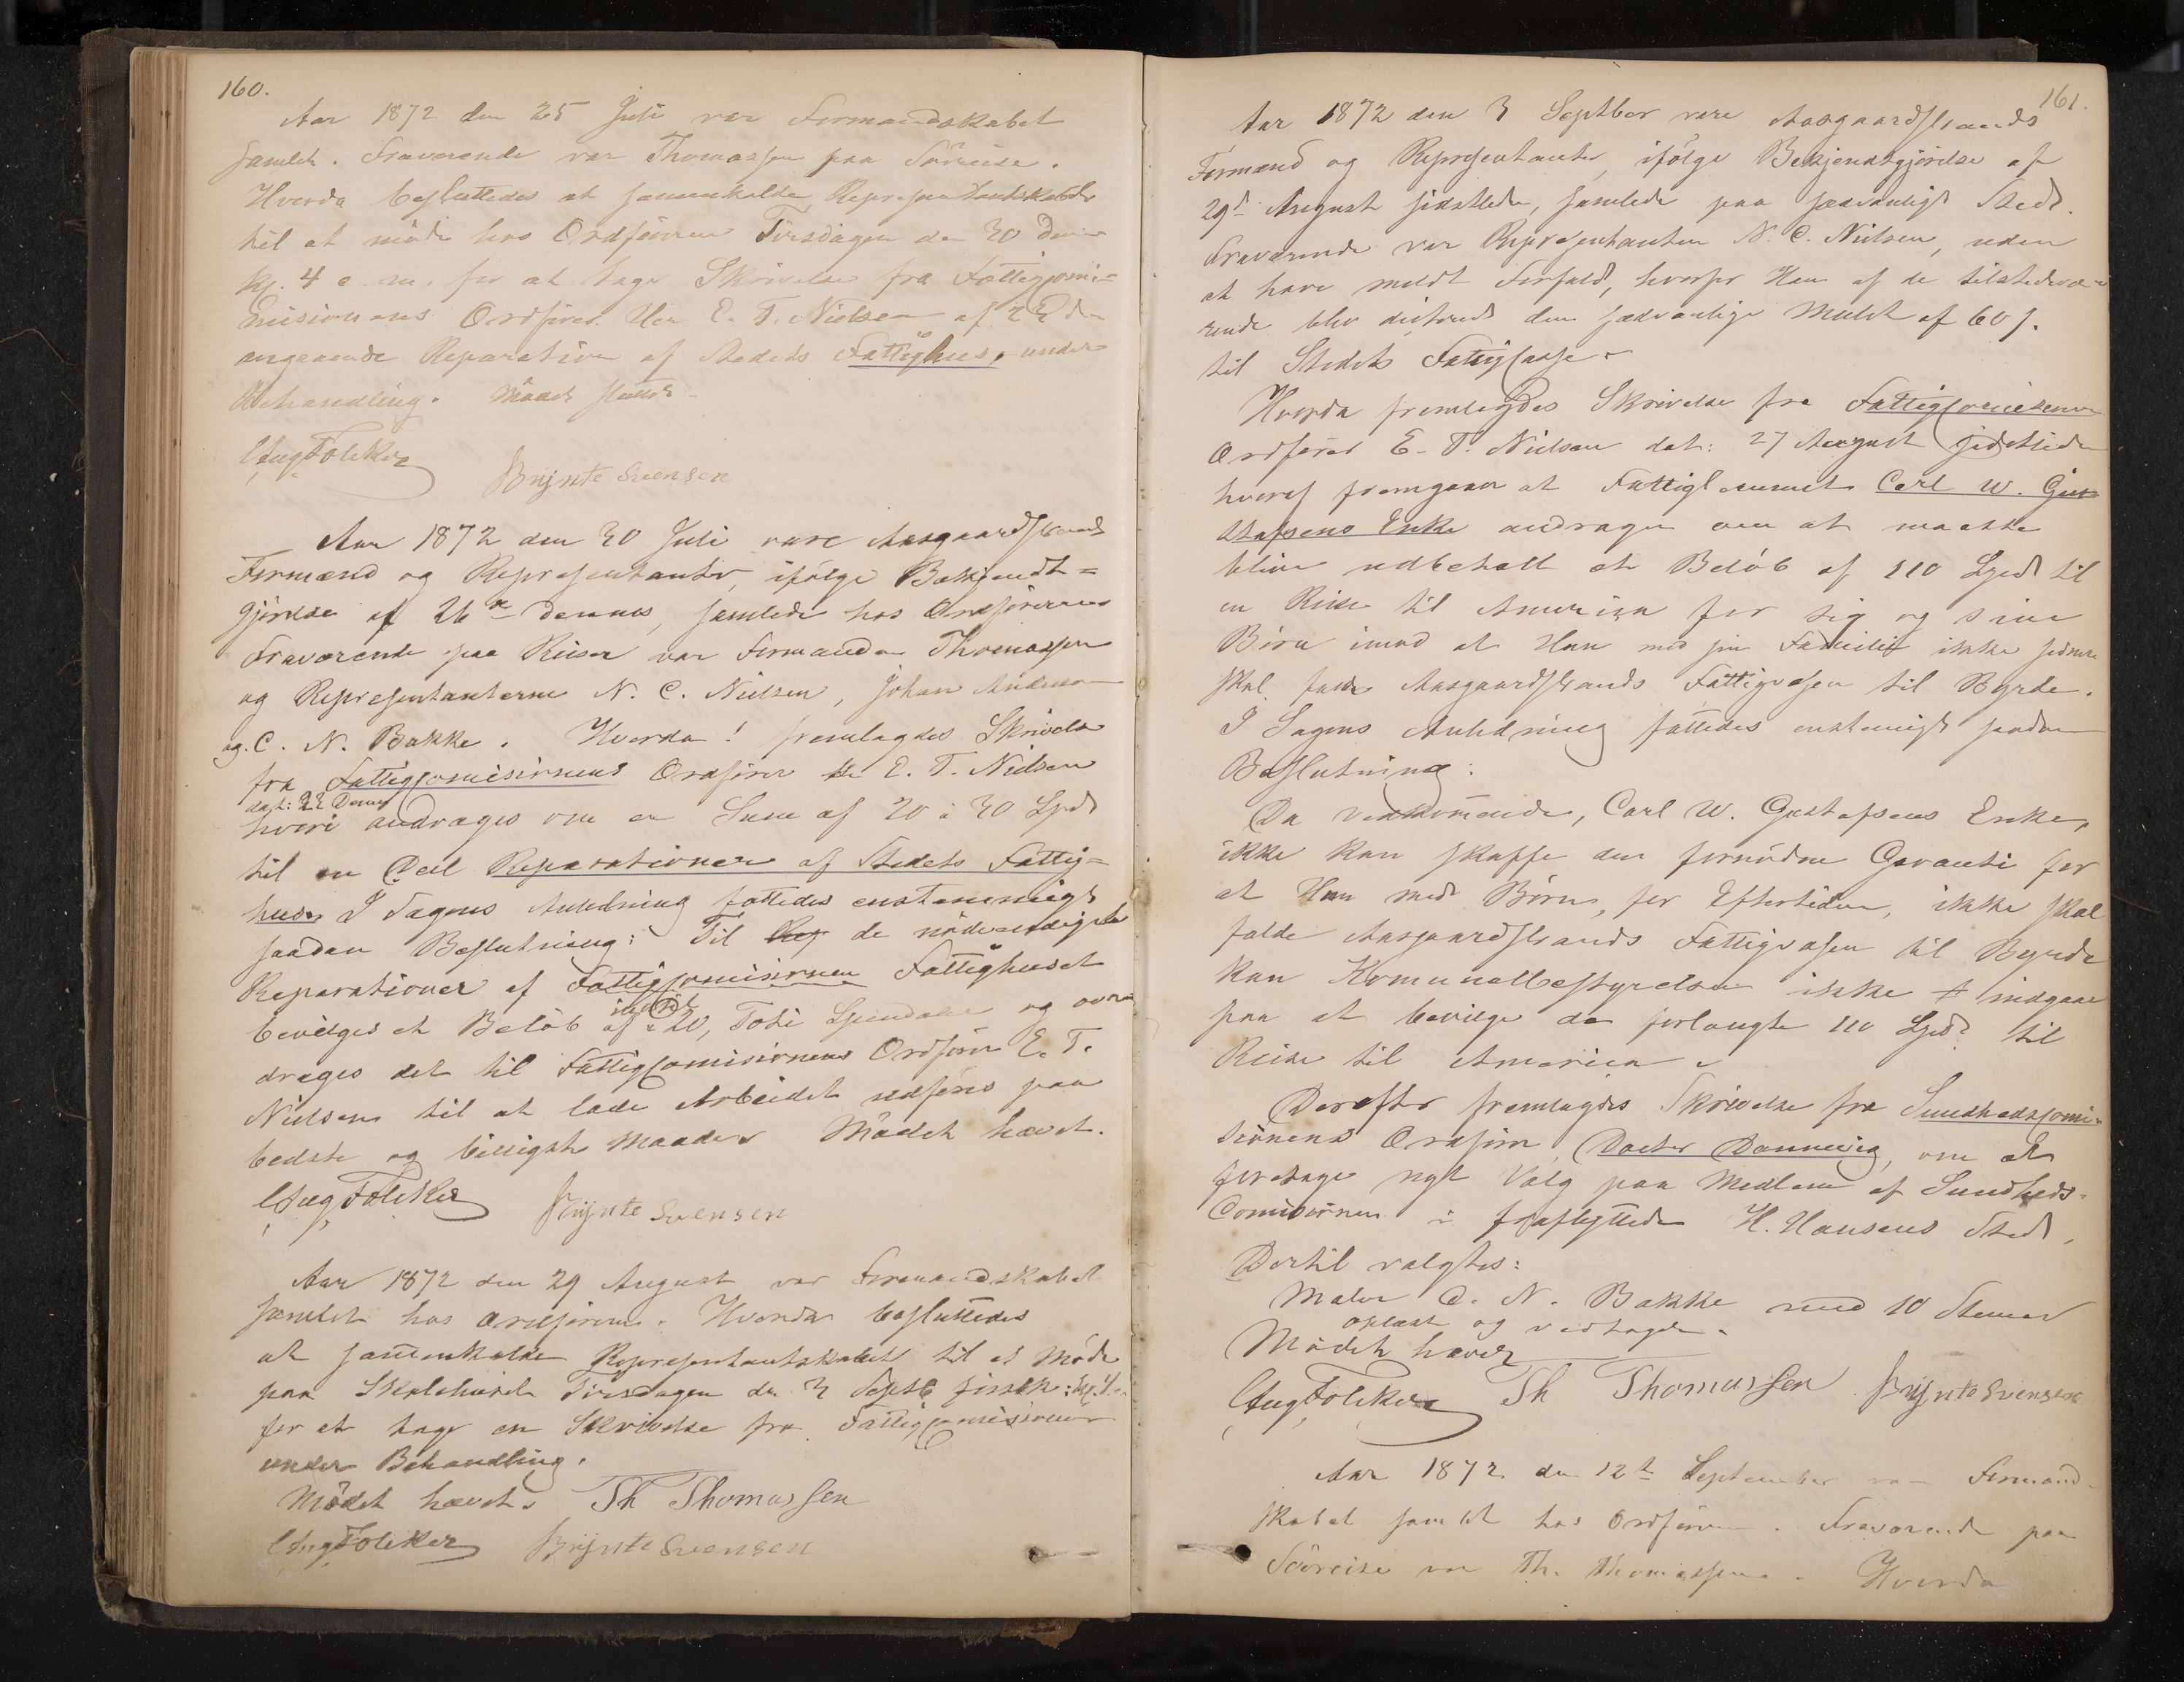 160.
Aar 1872 den 25 Juli var Formandskabet
samlet. Fraværende var Thomassen paa Söreise.
Hvorda besluttedes at sammenkalde Repræsentantskabet
til at möde hos Ordföreren Tirsdagen den 30 denne
kl. 4 e. m. for at tage Skrivelse fra Fattigcomi-
misionens Ordförer Hr E. T. Nielsen af 22 den
angaaende Reparation af Stedets Fattighus, under
Behandling. Mödet sluttet
C Aug Fölcker Brynte Svensen
Aar 1872 den 30 Juli vare Aasgaardstrands
Formænd og Representanter, ifölge Bekjendt=
gjörelse af 26de dennes, samlede hos Ordföreren
Fraværende paa Reiser var Formanden Thomassen
og Representanterne N. C. Nielsen, Johan Anderson
og C. N. Bakke. Hvorda! fremlagdes Skrivelse
fra Fattigcomisionens Ordförer Hr E. T. Nielsen
dat: 22 Dennes
hvori andrages om en Sum af 20 à 30 Spd
til en Deel Reparationer af Stedets Fattig=
hus. I Sagens Anledning fattedes enstemmigt
saadan Beslutning: Til Rep de nödvendigste
Reparationer af Fattigcomisionen Fattighuset
bevilges et Belöb af 20, Toti Speciedaler og over
drages det til Fattigcomisionens Ordförer E. T.
Nielsen til at lade Arbeidet udföres paa
bedste og billigste Maade. Mödet hævet.
C Aug Fölcker Brynte Svensen
Aar 1872 den 29 August var Formandskabet
samlet hos Ordföreren. Hvorda besluttedes
at sammenkalde Representantskabet til et Möde
paa Skolehuset Tirsdagen den 3 Septb förstk: kl. 4
for at tage en Skrivelse fra Fattigcomisionen
under Behandling.
Mödet hævet. Th Thomassen
C Aug Fölcker Brynte Svensen
161.
Aar 1872 den 3 Septbor vare Aasgaardstrands
Formænd og Representanter, ifölge Bekjendtgjörelse af
29d August sidstleden, samlede paa sædvanligt Sted.
Fraværende var Representanten N. C. Nielsen, uden
at have meldt Forfald, hvorfor Han af de tilstedevæ-
rende blev dicteret den sædvanlige Mulct af 60 s.
til Stedets Fattigcasse.
Hvorda fremlagdes Skrivelse fra Fattigcomisionens
Ordförer E. T. Nielsen dat: 27 August sidstleden
hvoraf fremgaar at Fattiglemmet Carl W. Gus-
tafsens Enke andrager om at maatte
blive udbetalt et Belöb af 110 Spd til
en Reise til Amerika for sig og sine
Börn imod at Hun med sin Familie ikke senere
skal falde Aasgaardstrands Fattigvæsen til Byrde.
I Sagens Anledning fattedes enstemmigt saadan
Beslutning:
Da vedkommende, Carl W. Gustafsens Enke,
ikke kan skaffe den fornödne Garanti for
at Hun med Börn, for Eftertiden, ikke skal
falde Aasgaardstrands Fattigvæsen til Byrde
kan Komunalbestyrelsen ikke indgaae
paa at bevilge de forlangte 110 Spd til
Reise til America.
Derefter fremlagdes Skrivelse fra Sundhedscomi-
sionens Ordförer, Doctor Dannevig, om at
foretage nyt Valg paa Medlem af Sundheds-
Comisionen i fraflyttede H. Hansens Sted,
Dertil valgtes:
Maler C. N. Bakke med 10 Stemer
oplæst og vedtagen.
Mödet hævet
C Aug Fölcker Th Thomassen Brynte Svensen
Aar 1872 den 12te September var Formand-
skabet samlet hos Ordföreren. Fraværende paa
Söreise var Th. Thomassen. Hvorda